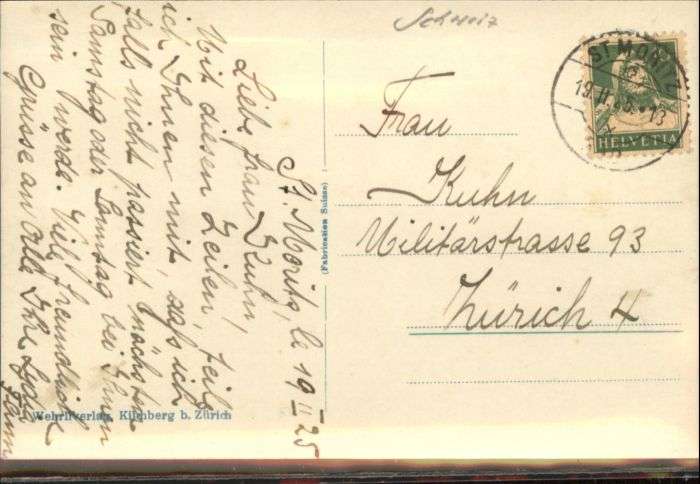 Schweiz
St. Moritz, le 19 II 25
Liebe Frau Kuhn,
Mit diesen Zeilen, teile
ich Ihnen mit, dass ich
falls nicht passiert nächsten
Samstag oder Sonntag bei Ihnen
sein werde. Viele freundliche
Grüsse an Alle Ihre Lydia
Wehrliverlag, Kilchberg b. Zürich
(Fabrication Suisse)
ST. MORITZ
19.II.25.-13
HELVETIA
Frau
Kuhn
Militärstrasse 93
Zürich 4